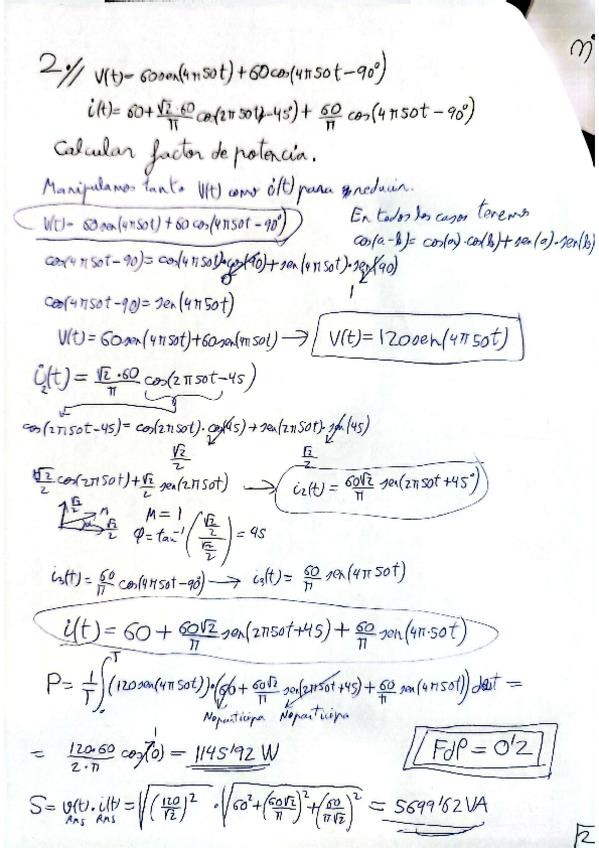 nº
2.// V(t)= 60sen(4π50t)+60cos(4π50t-90º)
i(t)= 60+ √2·60/π cos(2π50t-45º)+ 60/π cos(4π50t-90º)
Calcular factor de potencia.
Manipulamos tanto V(t) como i(t) para reducir.
V(t)= 60sen(4π50t)+60cos(4π50t-90º)
En todos los casos tenemos
cos(a-b)= cos(a)·cos(b)+sen(a)·sen(b)
cos(4π50t-90)= cos(4π50t)·cos(90)+sen(4π50t)·sen(90)
0 1
cos(4π50t-90)= sen(4π50t)
V(t)= 60sen(4π50t)+60sen(4π50t) → V(t)= 120sen(4π50t)
i2(t)= √2·60/π cos(2π50t-45)
cos(2π50t-45)= cos(2π50t)·cos(45)+sen(2π50t)·sen(45)
√2/2 √2/2
√2/2 cos(2π50t)+√2/2 sen(2π50t) → i2(t)= 60√2/π sen(2π50t+45º)
√2/2 M √2/2 M=1
φ=tan⁻¹((√2/2)/(√2/2))=45
i3(t)= 60/π cos(4π50t-90) → i3(t)= 60/π sen(4π50t)
i(t)= 60+ 60√2/π sen(2π50t+45)+ 60/π sen(4π·50t)
P= 1/T ∫0^T (120sen(4π50t))·(60+ 60√2/π sen(2π50t+45)+ 60/π sen(4π50t)) dt =
No participa No participa
= 120·60/2·π cos(0) = 1145'92 W
1
FdP = 0'2
S= V(t)·i(t)= √(120/√2)² · √60²+(60√2/π)²+(60/π√2)² = 5699'62 VA
RMS RMS
2